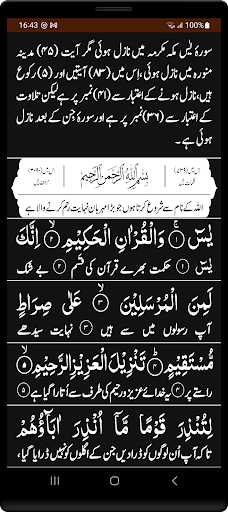 16:43
100%
سورۂ یٰس مکہ مکرمہ میں نازل ہوئی مگر آیت (۴۵) مدینہ
منورہ میں نازل ہوئی، اس میں (۸۳) آیتیں اور (۵) رکوع
ہیں، نازل ہونے کے اعتبار سے (۴۱) نمبر پر ہے لیکن تلاوت کے
اعتبار سے (۳۶) نمبر پر ہے اور سورۂ جن کے بعد نازل
ہوئی ہے۔
بِسْمِ اللّٰهِ الرَّحْمٰنِ الرَّحِيْمِ
اللہ کے نام سے شروع کرتا ہوں جو بڑا مہربان نہایت رحم کرنے والا ہے
يٰسٓ ۝۱ وَالْقُرْاٰنِ الْحَكِيْمِ ۝۲ اِنَّكَ
یٰسٓ ۱ حکمت بھرے قرآن کی قسم ۲ بے شک
لَمِنَ الْمُرْسَلِيْنَ ۝۳ عَلٰى صِرَاطٍ
آپ رسولوں میں سے ہیں ۳ نہایت سیدھے
مُّسْتَقِيْمٍ ۝۴ تَنْزِيْلَ الْعَزِيْزِ الرَّحِيْمِ ۝۵
راستے پر ۴ یہ خدائے عزیز و رحیم کی طرف سے اُتارا گیا ہے ۵
لِتُنْذِرَ قَوْمًا مَّاۤ اُنْذِرَ اٰبَآؤُهُمْ
تاکہ آپ اُن لوگوں کو ڈرا دیں جن کے اگلوں کو نہیں ڈرایا گیا،